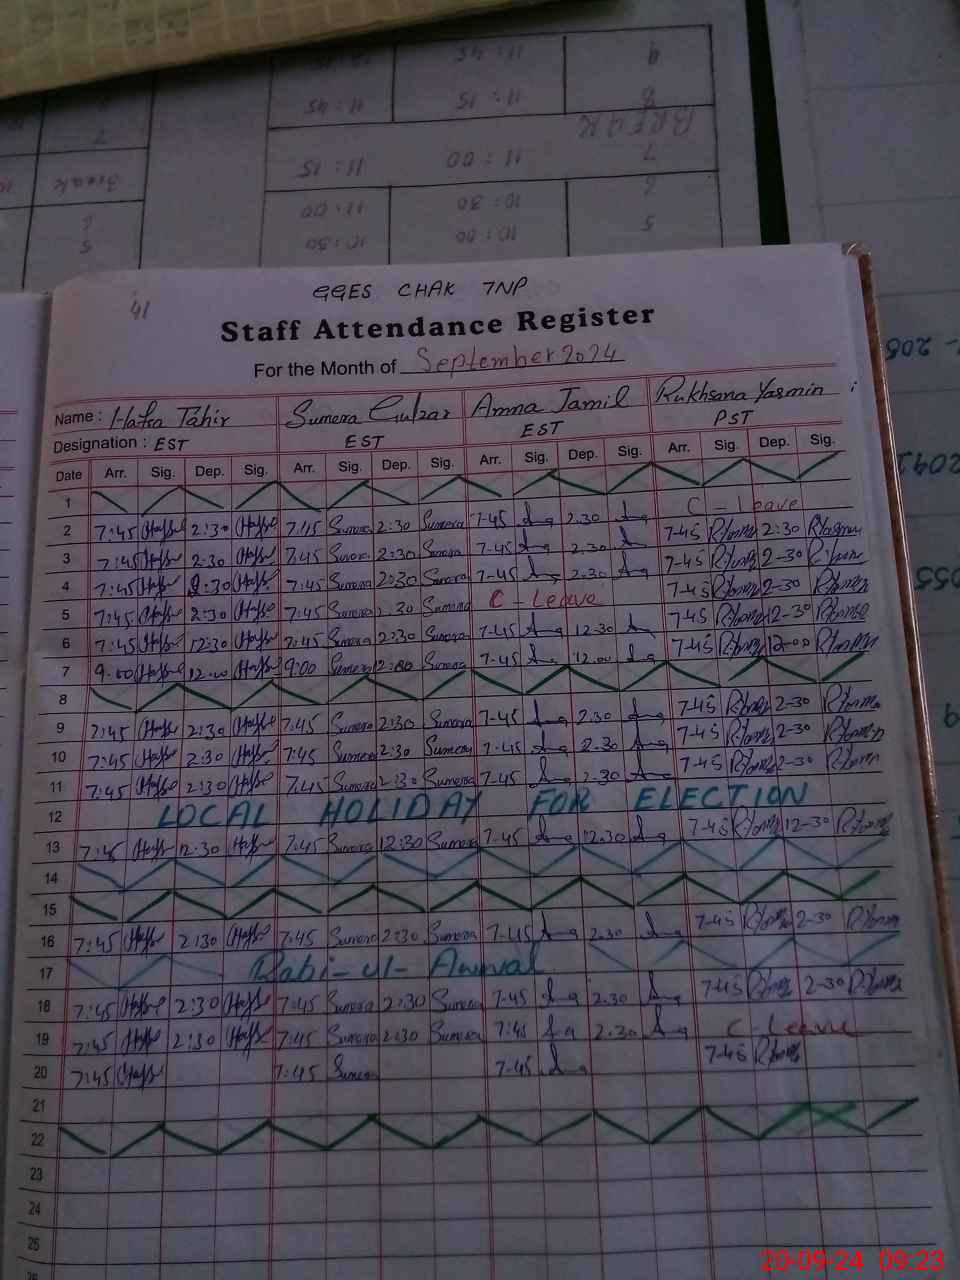 9 11:45 12:15
8 11:15 11:45
BREAK
7 11:00 11:15
6 10:30 11:00
5 10:00 10:30
7
Break
6
5
41
GGES CHAK 7NP
Staff Attendance Register
For the Month of September 2024
Name : Hafsa Tahir Sumera Gulzar Amna Jamil Rukhsana Yasmin
Designation : EST EST EST PST
Date Arr. Sig. Dep. Sig. Arr. Sig. Dep. Sig. Arr. Sig. Dep. Sig. Arr. Sig. Dep. Sig.
1
2 7:45 Hafsa 2:30 Hafsa 7:45 Sumera 2:30 Sumera 7-45 2.30 C - Leave
3 7:45 Hafsa 2:30 Hafsa 7:45 Sumera 2:30 Sumera 7-45 2.30 7-45 2:30
4 7:45 Hafsa 2:30 Hafsa 7:45 Sumera 2:30 Sumera 7-45 2.30 7-45 2-30
5 7:45 Hafsa 2:30 Hafsa 7:45 Sumera 2:30 Sumera C - Leave 7-45 2-30
6 7:45 Hafsa 12:30 Hafsa 7:45 Sumera 12:30 Sumera 7-45 12-30 7-45 12-30
7 9:00 Hafsa 12:00 Hafsa 9:00 Sumera 12:00 Sumera 7-45 12.00 7-45 12-00
8
9 7:45 Hafsa 2:30 Hafsa 7:45 Sumera 2:30 Sumera 7-45 2.30 7-45 2-30
10 7:45 Hafsa 2:30 Hafsa 7:45 Sumera 2:30 Sumera 7-45 2.30 7-45 2-30
11 7:45 Hafsa 2:30 Hafsa 7:45 Sumera 2:30 Sumera 7-45 2-30 7-45 2-30
12 LOCAL HOLIDAY FOR ELECTION
13 7:45 Hafsa 12:30 Hafsa 7:45 Sumera 12:30 Sumera 7-45 12.30 7-45 12-30
14
15
16 7:45 Hafsa 2:30 Hafsa 7:45 Sumera 2:30 Sumera 7-45 2.30 7-45 2-30
17 Rabi-ul-Awwal
18 7:45 Hafsa 2:30 Hafsa 7:45 Sumera 2:30 Sumera 7-45 2.30 7-45 2-30
19 7:45 Hafsa 2:30 Hafsa 7:45 Sumera 2:30 Sumera 7:45 2.30 C - Leave
20 7:45 Hafsa 7:45 Sumera 7-45 7-45
21
22
23
24
25
26
20-09-24 09:23